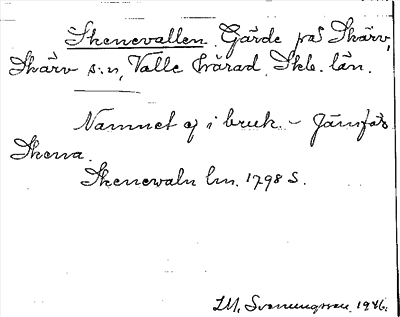 Skenevallen. Gärde på Skärv,
Skärv s:n, Valle härad. Skb. län.
Namnet ej i bruk. - Jämför
Skena.
Skenewaln lm. 1798 S.
I.M. Svenungsson 1946.